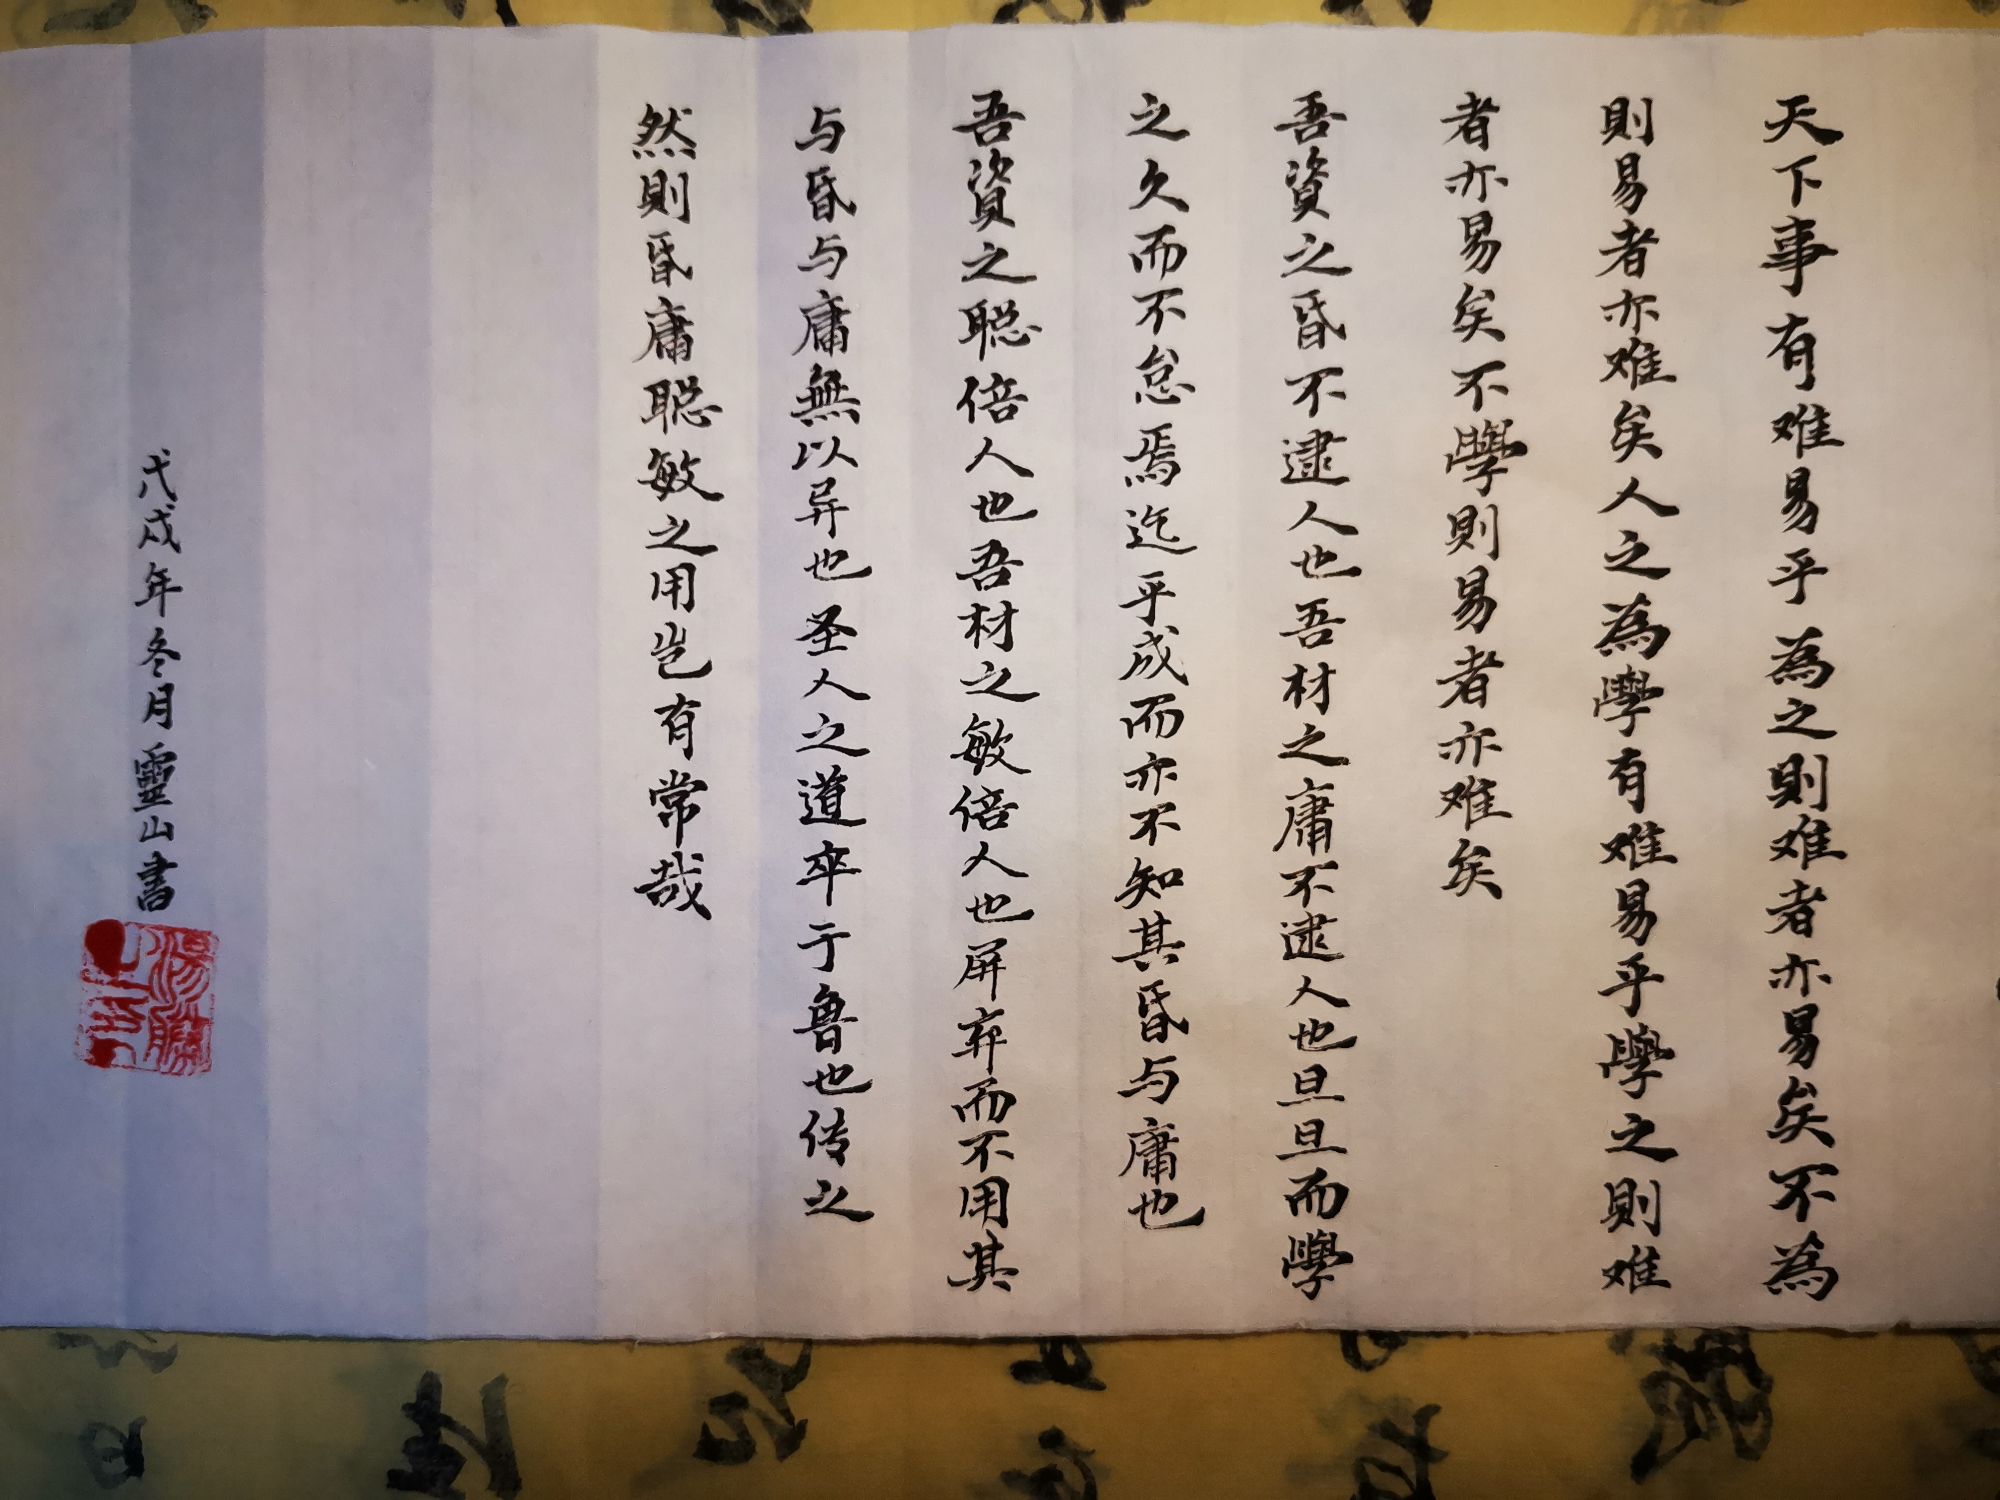 天下事有难易乎為之則难者亦易矣不為
則易者亦难矣人之為學有难易乎學之則难
者亦易矣不學則易者亦难矣
吾資之昏不逮人也吾材之庸不逮人也旦旦而學
之久而不怠焉迄乎成而亦不知其昏与庸也
吾資之聪倍人也吾材之敏倍人也屏弃而不用其
与昏与庸無以异也圣人之道卒于魯也传之
然則昏庸聪敏之用岂有常哉
戊戌年冬月靈山書